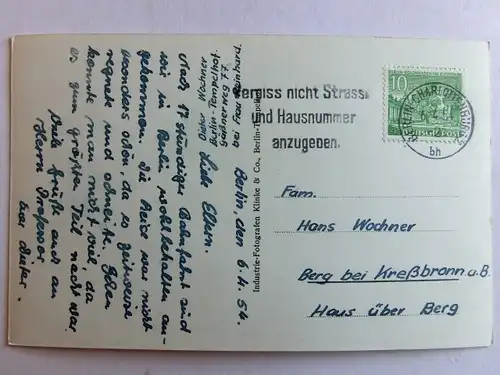 Berlin, den 6.4.54.
Liebe Eltern.
Nach 17 stündiger Bahnfahrt sind
wir in Berlin wohlbehalten an-
gekommen. Die Reise war nicht
besonders schön, da es zeitweise
regnete und schneite. Sehen
konnte man nicht viel, da
es zum größten Teil nacht war.
Viele Grüße auch an
Herrn Professor.
Euer Dieter.
Wochner
Berlin-Tempelhof.
Industrie-Fotografen Klinke & Co., Berlin-Tempelhof
Vergiss nicht Strasse
und Hausnummer
anzugeben.
BERLIN-CHARLOTTENBURG
bh
10
DEUTSCHE POST
Fam.
Hans Wochner
Berg bei Kreßbronn a.B.
Haus über Berg